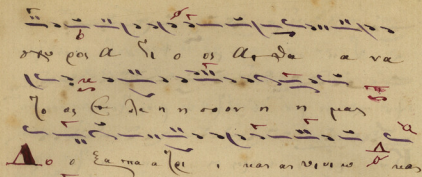 σχυ ρος Α γι ο ος Α θα α να
το ος Ε λε η η σον η η μας
Δο ο ξα πα α τρι ι και αι υι ι ω και